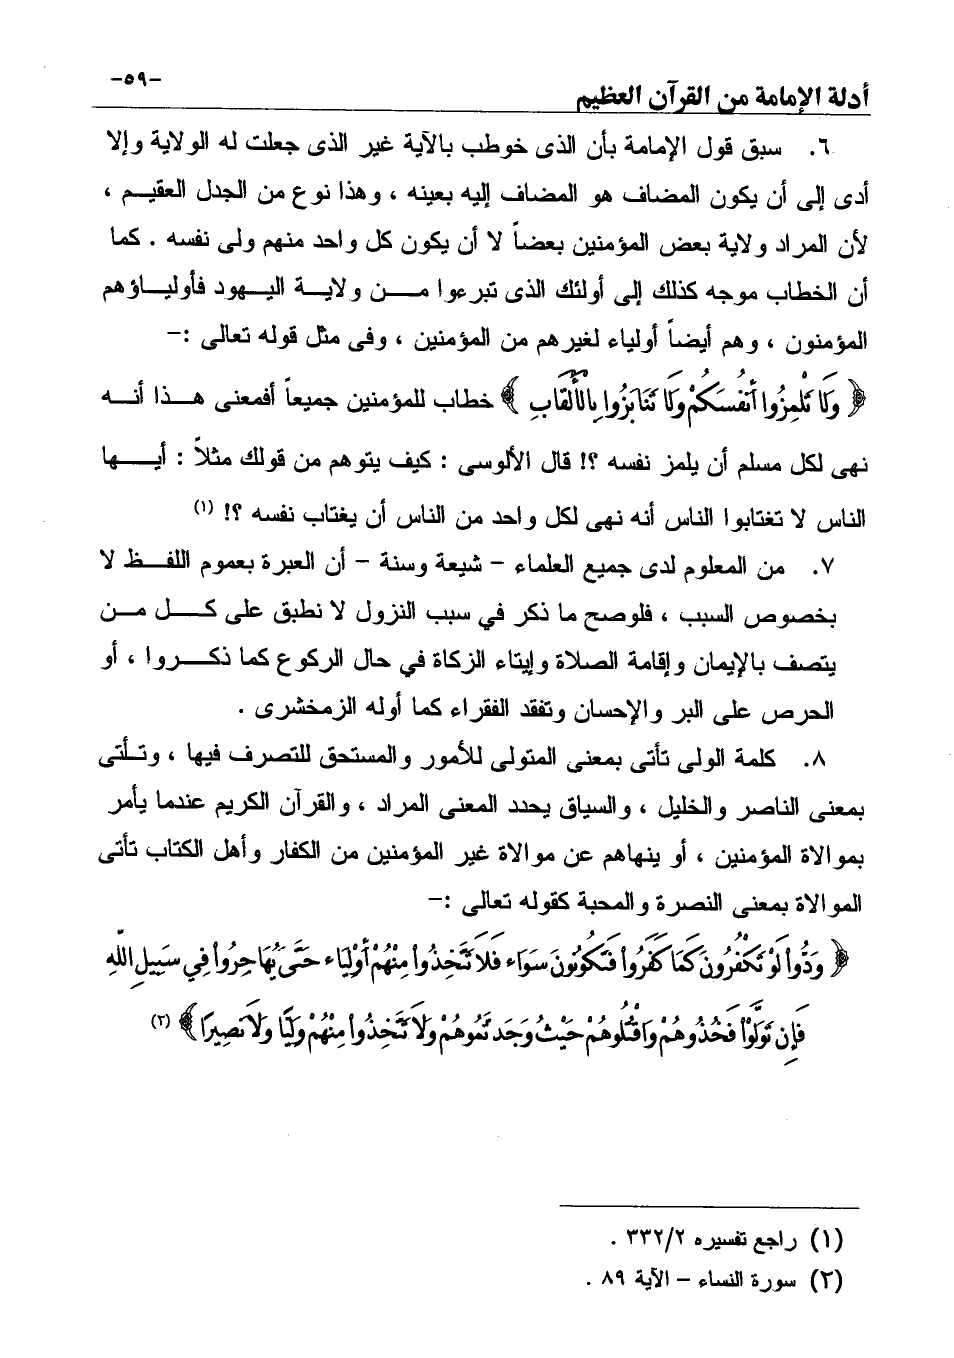 -٥٩-
أدلة الإمامة من القرآن العظيم
٦. سبق قول الإمامة بأن الذى خوطب بالآية غير الذى جعلت له الولاية وإلا
أدى إلى أن يكون المضاف هو المضاف إليه بعينه ، وهذا نوع من الجدل العقيم ،
لأن المراد ولاية بعض المؤمنين بعضاً لا أن يكون كل واحد منهم ولى نفسه . كما
أن الخطاب موجه كذلك إلى أولئك الذى تبرءوا من ولاية اليهود فأولياؤهم
المؤمنون ، وهم أيضاً أولياء لغيرهم من المؤمنين ، وفى مثل قوله تعالى :-
﴿ وَلَا تَلْمِزُوا أَنفُسَكُمْ وَلَا تَنَابَزُوا بِالْأَلْقَابِ ﴾ خطاب للمؤمنين جميعاً أفمعنى هذا أنه
نهى لكل مسلم أن يلمز نفسه ؟! قال الألوسى : كيف يتوهم من قولك مثلاً : أيها
الناس لا تغتابوا الناس أنه نهى لكل واحد من الناس أن يغتاب نفسه ؟! (١)
٧. من المعلوم لدى جميع العلماء - شيعة وسنة - أن العبرة بعموم اللفظ لا
بخصوص السبب ، فلوصح ما ذكر في سبب النزول لا نطبق على كل من
يتصف بالإيمان وإقامة الصلاة وإيتاء الزكاة في حال الركوع كما ذكروا ، أو
الحرص على البر والإحسان وتفقد الفقراء كما أوله الزمخشرى .
٨. كلمة الولى تأتى بمعنى المتولى للأمور والمستحق للتصرف فيها ، وتأتى
بمعنى الناصر والخليل ، والسياق يحدد المعنى المراد ، والقرآن الكريم عندما يأمر
بموالاة المؤمنين ، أو ينهاهم عن موالاة غير المؤمنين من الكفار وأهل الكتاب تأتى
الموالاة بمعنى النصرة والمحبة كقوله تعالى :-
﴿ وَدُّوا لَوْ تَكْفُرُونَ كَمَا كَفَرُوا فَتَكُونُونَ سَوَاء فَلَا تَتَّخِذُوا مِنْهُمْ أَوْلِيَاء حَتَّىَ يُهَاجِرُوا فِي سَبِيلِ اللّهِ
فَإِن تَوَلَّوْا فَخُذُوهُمْ وَاقْتُلُوهُمْ حَيْثُ وَجَدتَّمُوهُمْ وَلَا تَتَّخِذُوا مِنْهُمْ وَلِيًّا وَلَا نَصِيرًا ﴾ (٢)
(١) راجع تفسيره ٣٣٢/٢ .
(٢) سورة النساء - الآية ٨٩ .